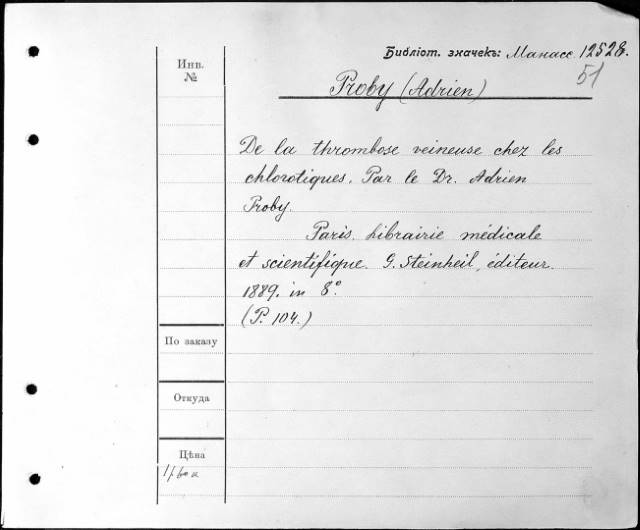 Библіот. значекъ: Манасс. 12528.
51
Инв.
№
Proby (Adrien)
De la thrombose veineuse chez les
chlorotiques. Par le Dr. Adrien
Proby.
Paris. Librairie médicale
et scientifique. G. Steinheil, éditeur.
1889. in 8°.
(P. 104.)
По заказу
Откуда
Цѣна